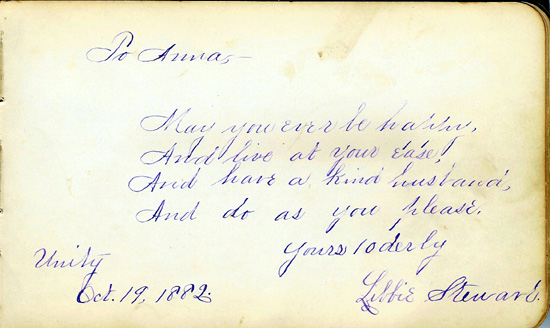 To Anna,—
May you ever be happy,
And live at your ease,
And have a kind husband,
And do as you please.
Yours 10derly
Unity
Oct. 19, 1882.
Libbie Steward.